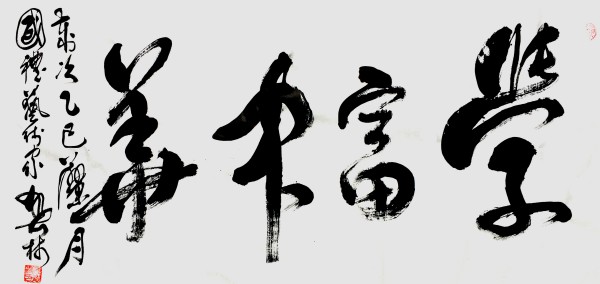 學富才華
歲次乙巳月
國禮藝術家